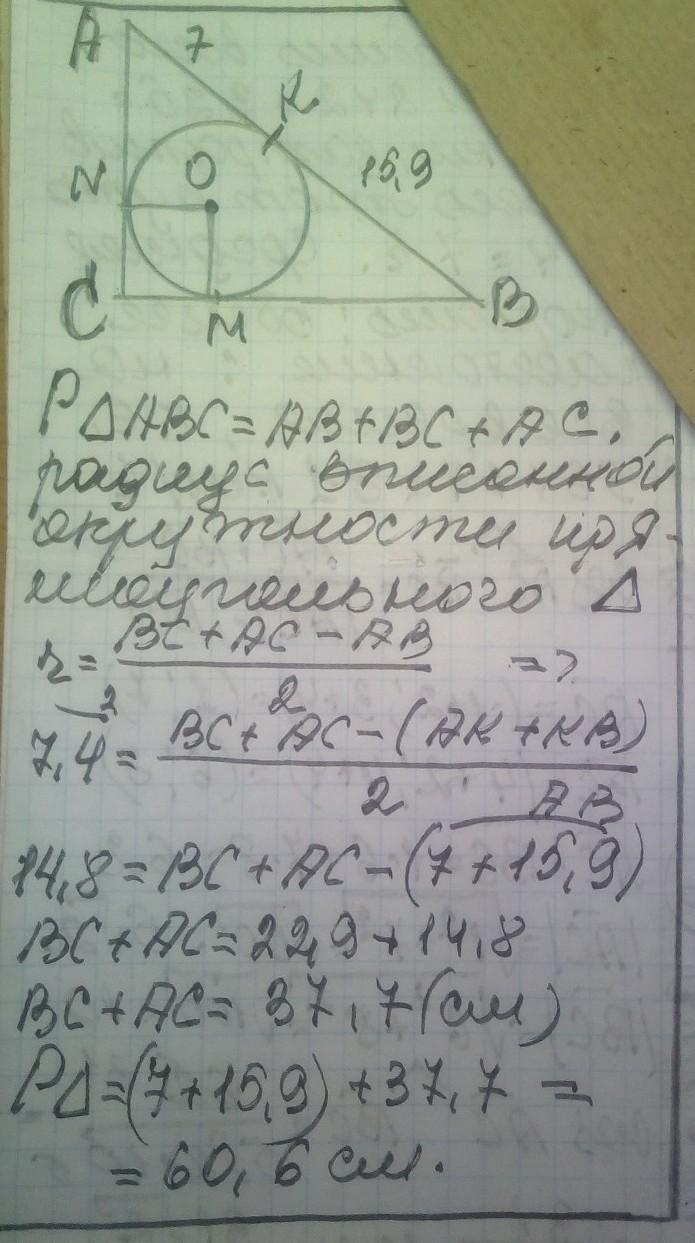 A 7
K
N O 15,9
C M B
P△ABC=AB+BC+AC.
радиус вписанной
окружности пря-
моугольного △
r = (BC+AC-AB)/2 =>
7,4 = (BC+AC-(AK+KB))/2
AB
14,8=BC+AC-(7+15,9)
BC+AC=22,9+14,8
BC+AC= 37,7(см)
P△=(7+15,9)+37,7 =
= 60,6 см.